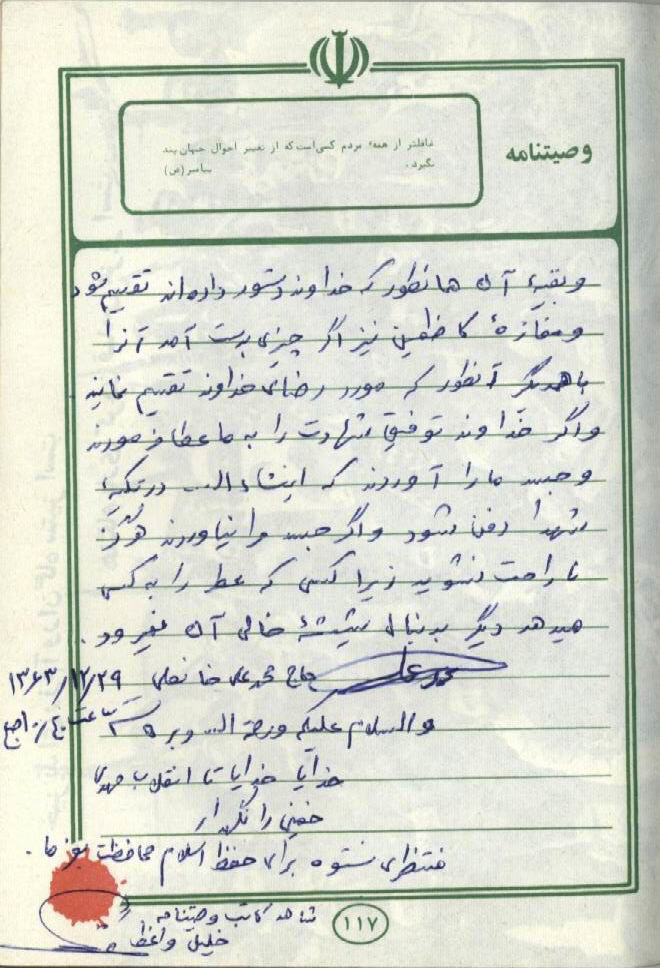 وصیتنامه
غافلتر از همهٔ مردم کسی است که از تغییر احوال جهان پند
نگیرد.
پیامبر (ص)
و بقیهٔ آن همانطور که خداوند دستور داده‌اند تقسیم شود
و مغازهٔ کاظمین نیز اگر چیزی بدست آمد آنرا
با همدیگر آنطور که مورد رضای خداوند تقسیم نمایند.
و اگر خداوند توفیق شهادت را به ما عطا فرمودند
و جسد ما را آوردند که انشاءالله در تکیهٔ
شهدا دفن شود و اگر جسد مرا نیاوردند هرگز
ناراحت نشوید زیرا کسی که عطر را به کسی
میدهد دیگر بدنبال شیشهٔ خالی آن نمیرود.
حاج محمد علی ۱۳۶۳/۱۲/۲۹
والسلام علیکم و رحمة الله و بر ساعت صبح
خدایا خدایا تا انقلاب مهدی
خمینی را نگهدار
منتظری نستوه برای حفظ اسلام محافظت بفرما.
شاهد کاتب وصیتنامه
خلیل واعظی
۱۱۷